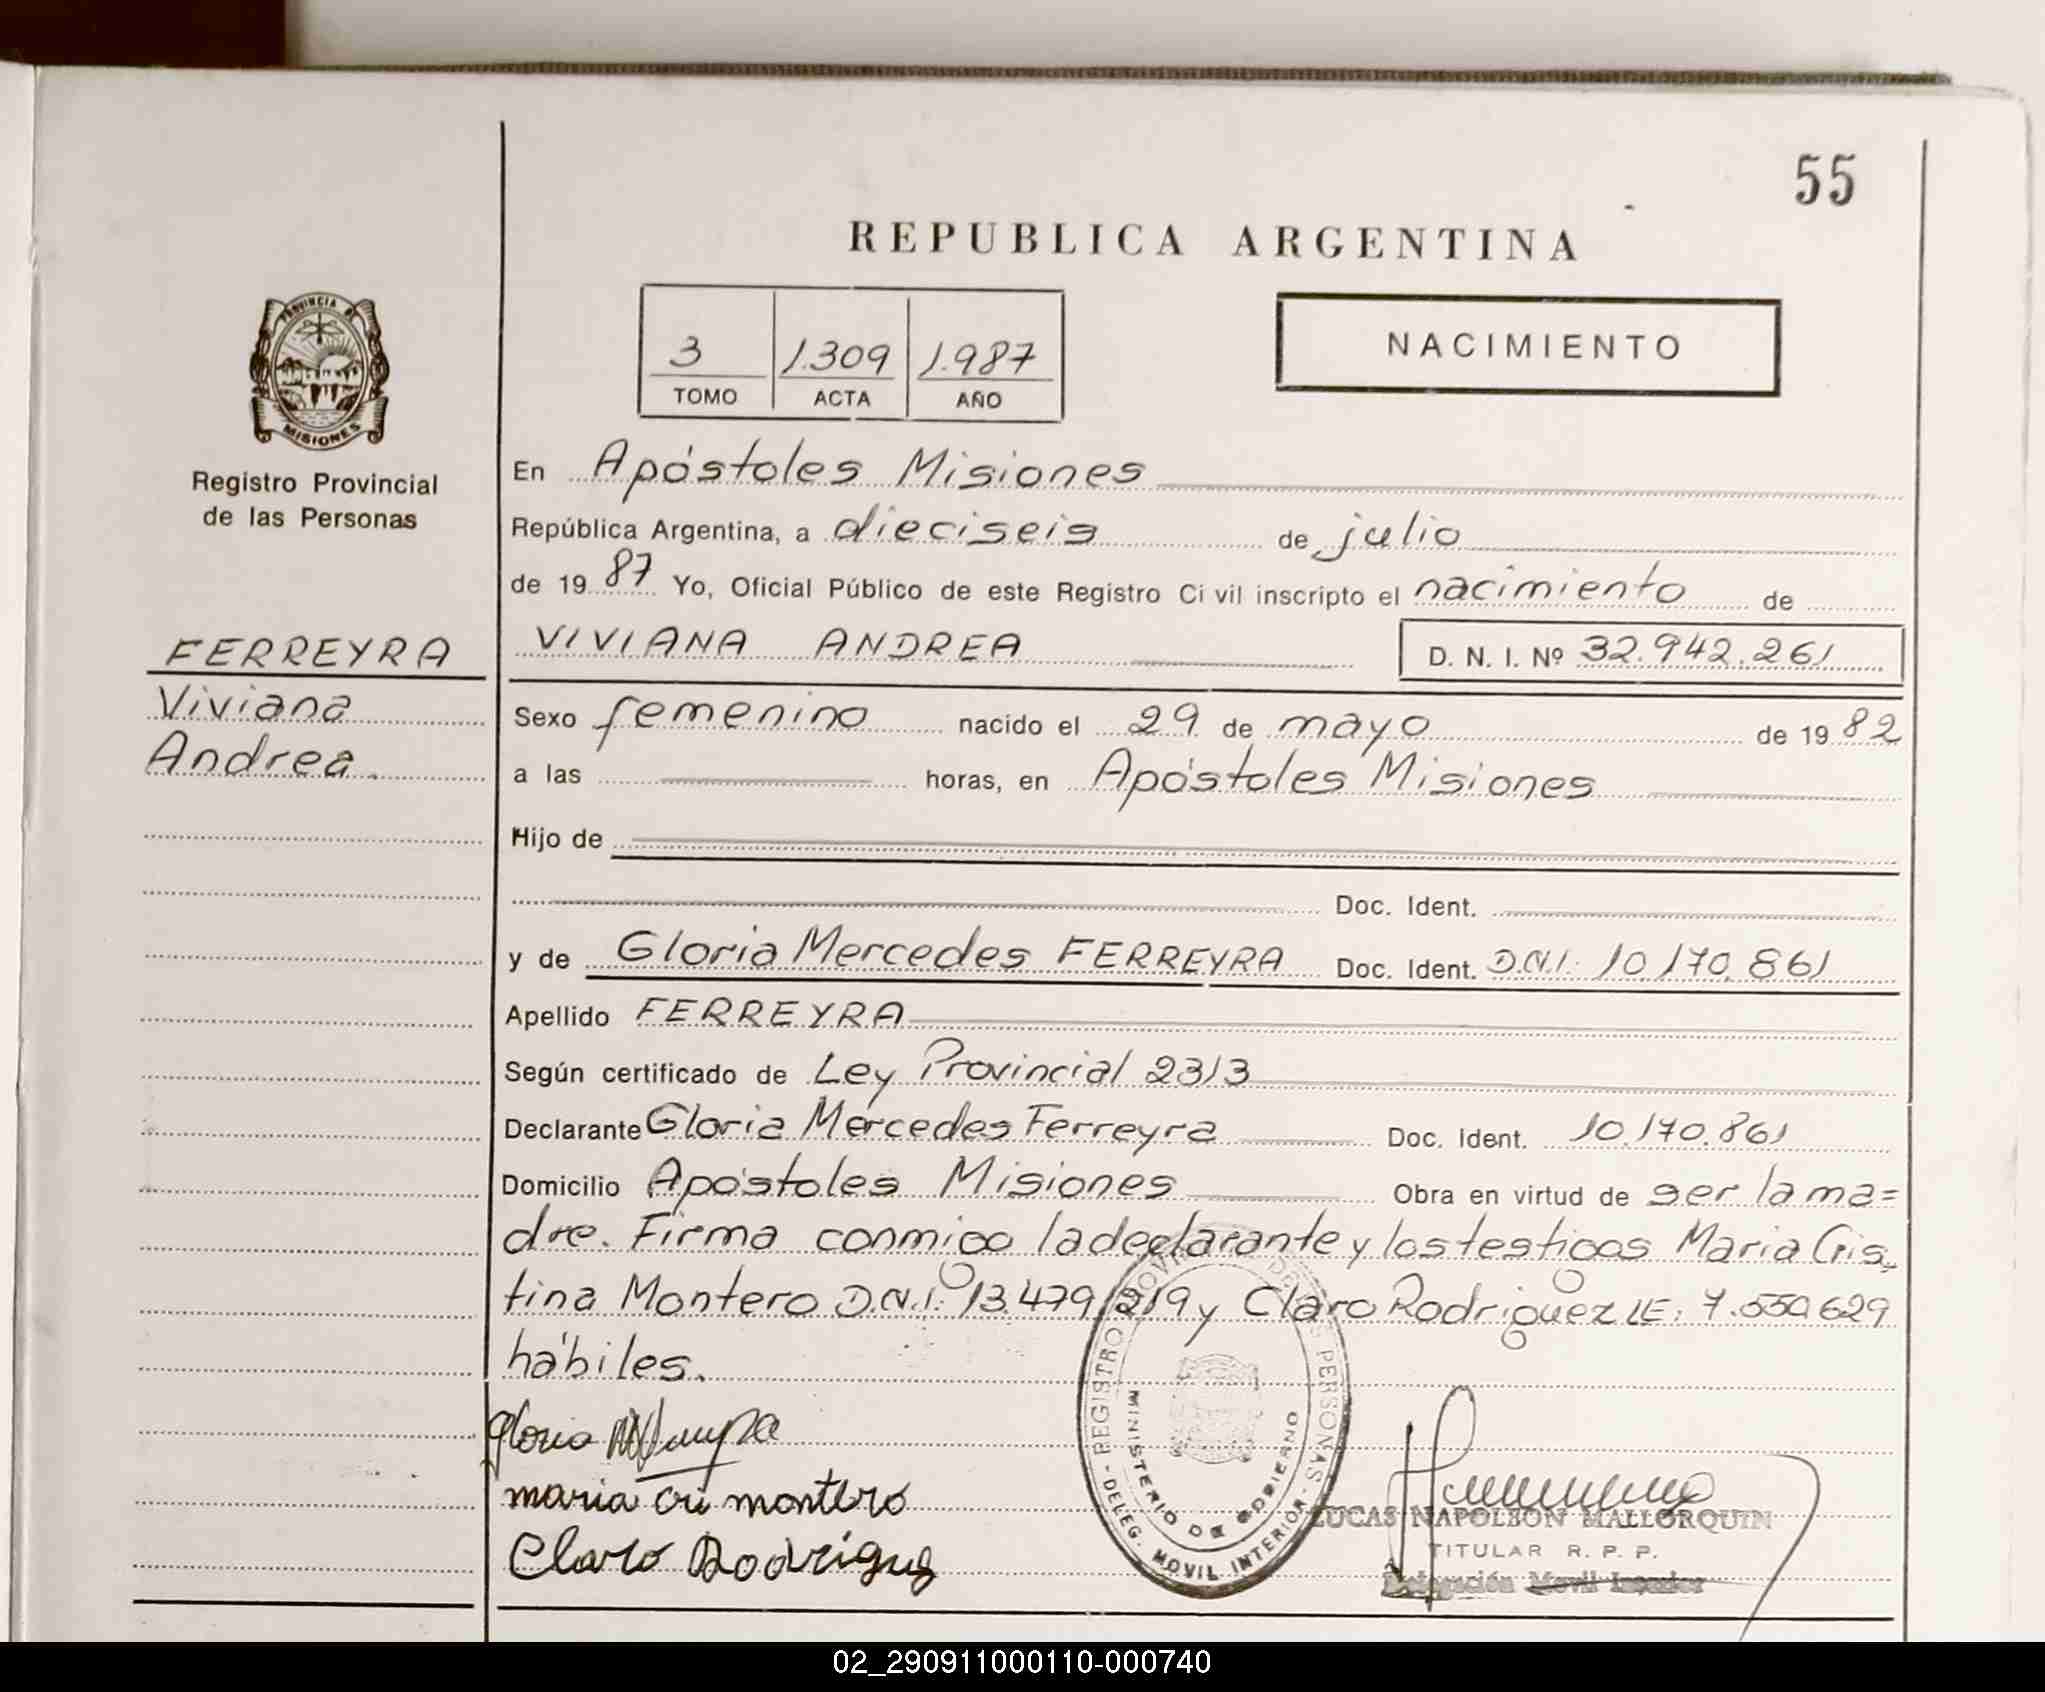 55
REPUBLICA ARGENTINA
3 1.309 1.987
TOMO ACTA AÑO
NACIMIENTO
PROVINCIA DE
MISIONES
Registro Provincial
de las Personas
En Apóstoles Misiones
República Argentina, a dieciseis de julio
de 19 87 Yo, Oficial Público de este Registro Ci vil inscripto el nacimiento de
VIVIANA ANDREA D. N. I. Nº 32.942.261
FERREYRA
Viviana
Andrea.
Sexo femenino nacido el 29 de mayo de 19 82
a las horas, en Apóstoles Misiones
Hijo de
Doc. Ident.
y de Gloria Mercedes FERREYRA Doc. Ident. D.N.I: 10.170.861
Apellido FERREYRA
Según certificado de Ley Provincial 2313
Declarante Gloria Mercedes Ferreyra Doc. Ident. 10.170.861
Domicilio Apóstoles Misiones Obra en virtud de ser la ma=
dre. Firma conmigo la declarante y los testigos Maria Cris
tina Montero D.N.I: 13.479.219 y Claro Rodriguez LE: 7.550629
hábiles.
Gloria
maria cri montero
Claro Rodrigue
REGISTRO PROVINCIAL DE LAS PERSONAS - DELEG. MOVIL INTERIOR -
MINISTERIO DE GOBIERNO
LUCAS NAPOLEON MALLORQUIN
TITULAR R. P. P.
Delegación Movil Interior
02_290911000110-000740